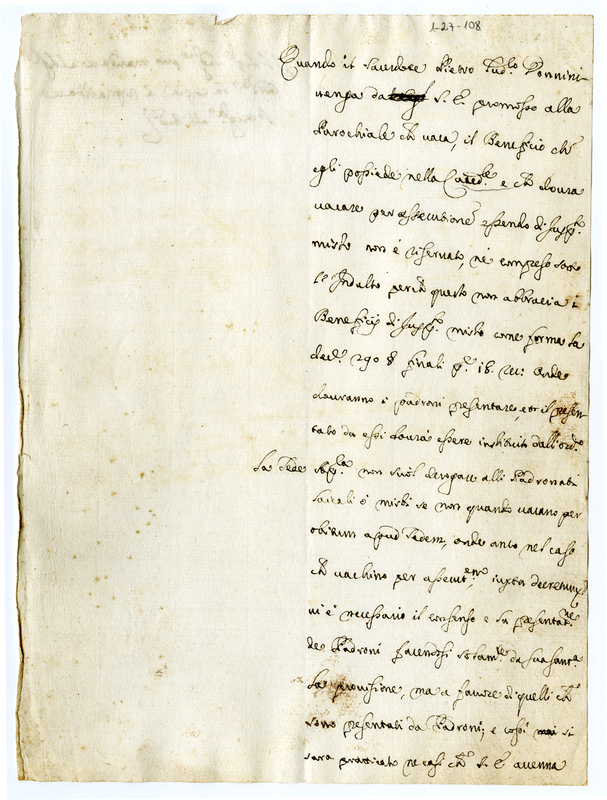 1-27-108
Quando il sacerdote Pietro Lud.co Vonnini
venga da S. E. promosso alla
Parochiale ch vaca, il Beneficio ch'
egli possiede nella Catted.le e ch dovra
vacare per assecutione essendo di Jusp.o
misto non è riservato, ne compreso sotto
l'Indulto perch questo non abbracia i
Beneficij di Jusp.o misto come forma la
dec. 290 § finali p. 16. onde
dovranno i padroni presentare, et il presen-
tato da essi dovrà essere instituito dall'ord.o
La Sede Ap.la non suol derogare alli Padronati
laicali ò misti se non quando vacano per
obitum apud Sedem, onde anco nel caso
ch vachino per assecut.ne, iuxta decretum,
vi è necessario il consenso e la presentat.ne
de Padroni facendosi solam.te da sua Santa
la provisione, ma a favore di quelli ch
sono presentati da Padroni; e cossi si
sara pratticato ne casi ch S. E. avenna